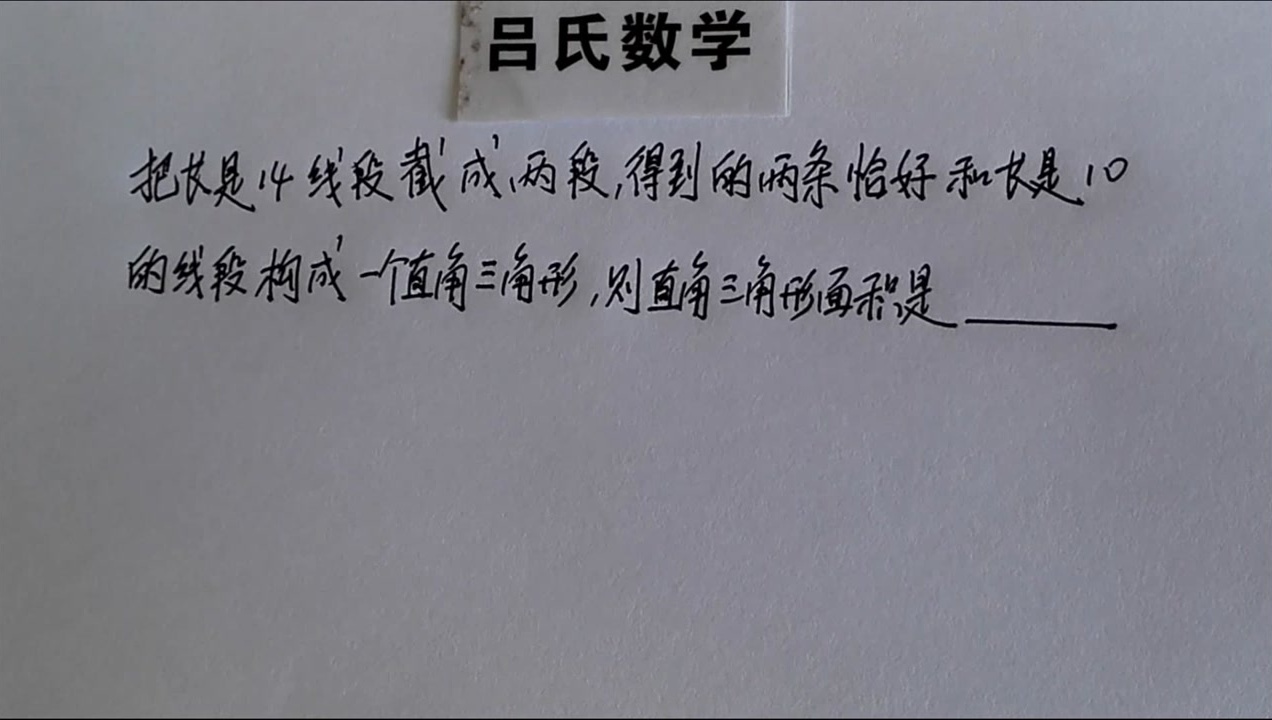 吕氏数学
把长是14线段截成两段,得到的两条恰好和长是10
的线段构成一个直角三角形,则直角三角形面积是______